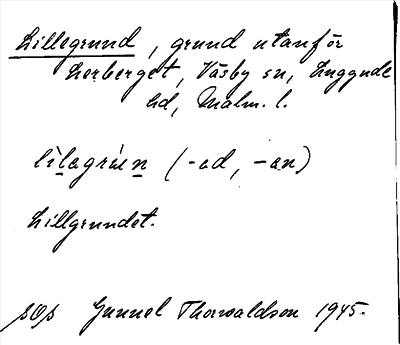 Lillegrund, grund utanför
Lerberget, Väsby sn, Luggude
hd, Malm. l.
lìlagrùen (-ad, -an)
Lillgrundet.
Gunnel Thorwaldson 1945.